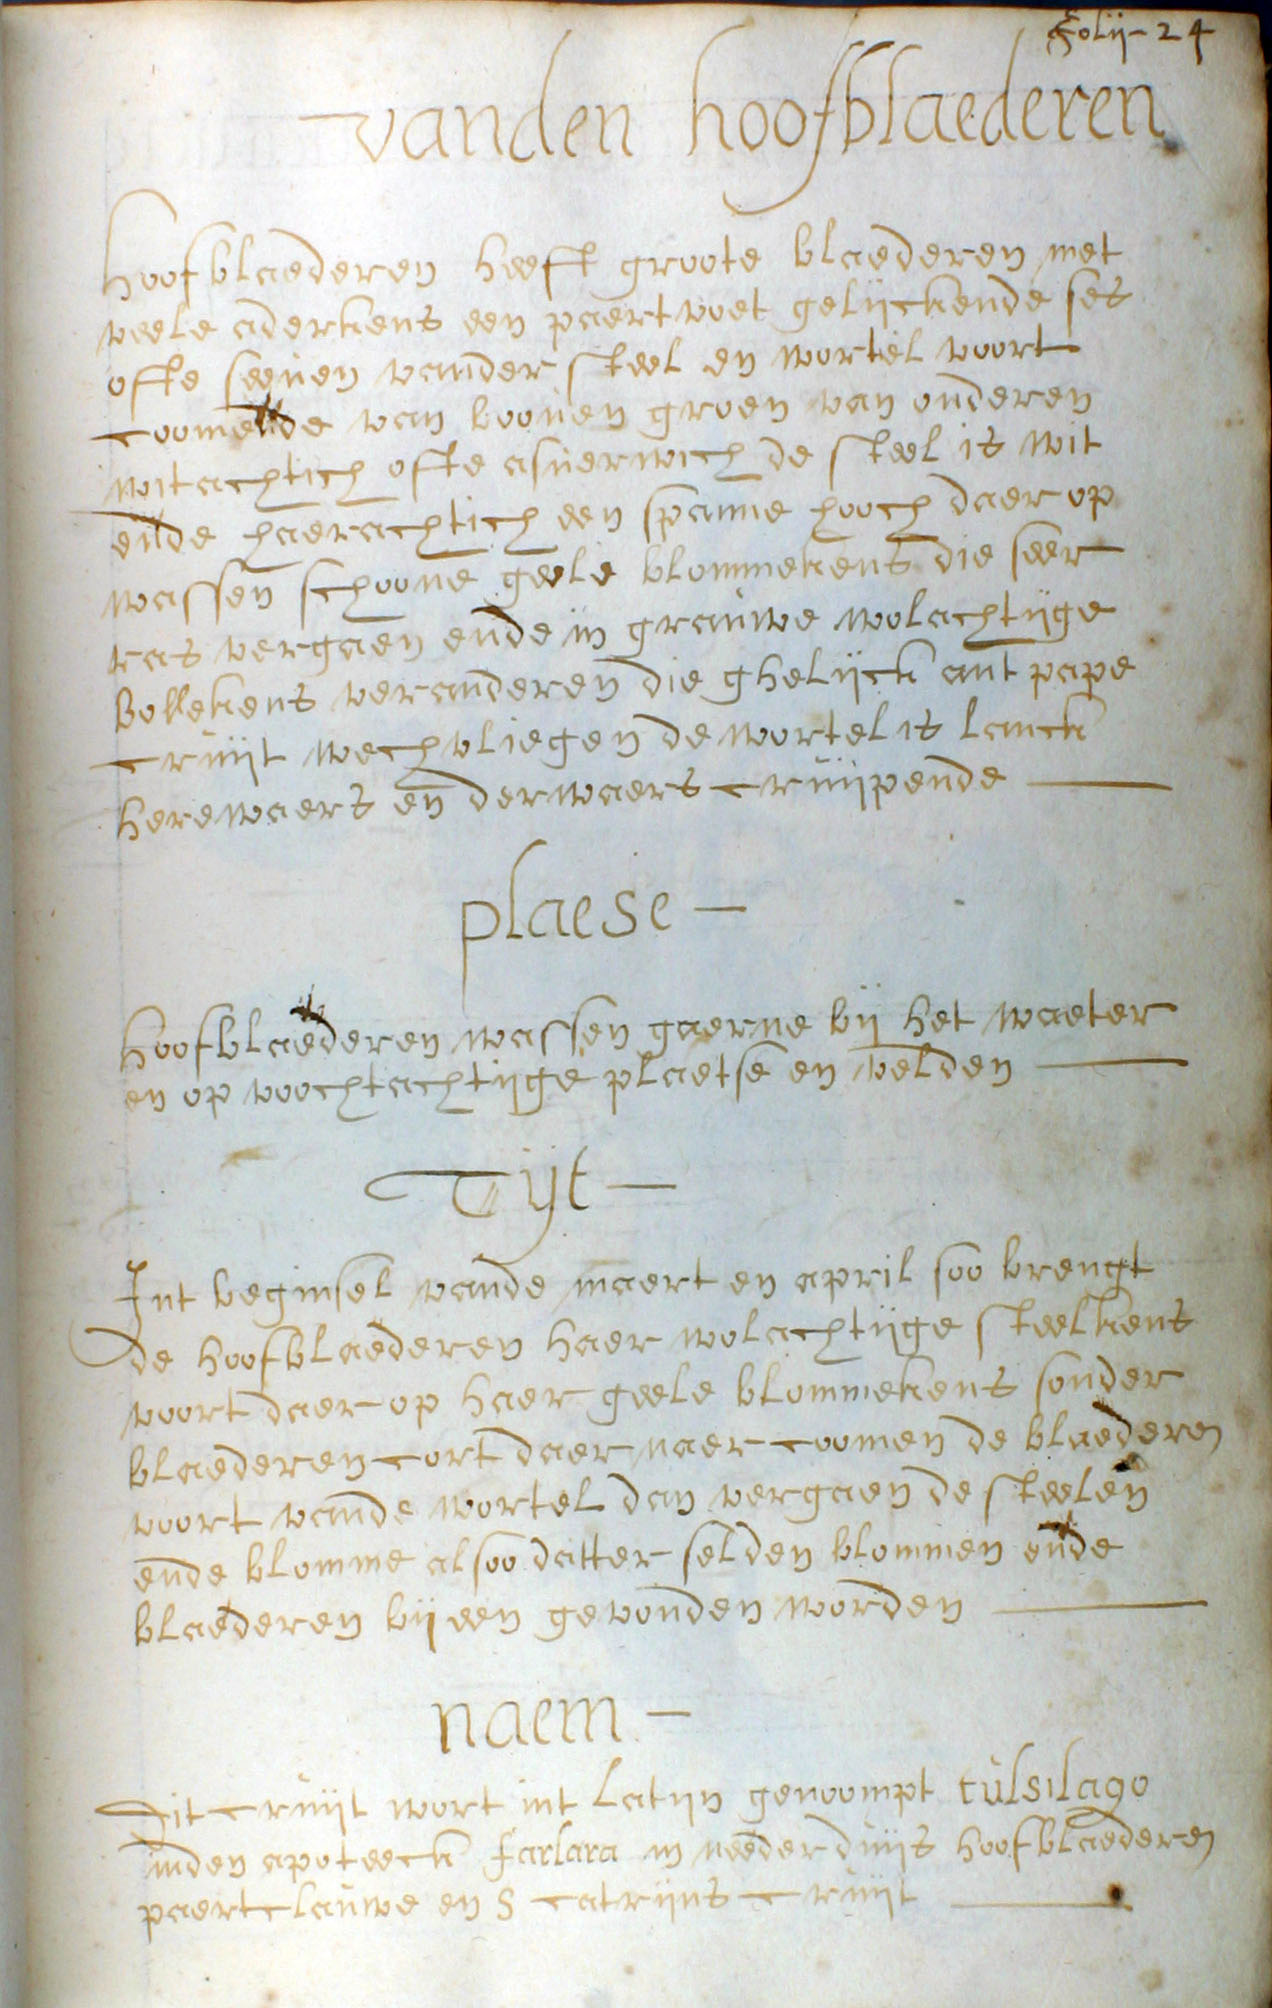 Folij - 24
vanden hoofblaederen
Hoofblaederen heeft groote blaederen met
veele aderkens een paert voet gelijckende ses
ofte seeuen vander steel en wortel voort
coomende van boouen groen van onderen
witachtich ofte asverwich de steel is wit
ende haerachtich een spanne hooch daer op
wassen schoone geele blommekens die seer
ras vergaen ende in grauwe wolachtijge
Bollekens veranderen die ghelijck ant pape
cruijt wech vliegen de wortel is lanck
herewaers en derwaers cruijpende
plaese -
Hoofblaederen wassen gaerne bij het waeter
en op voochtachtijge plaetse en velden
Tijt -
Int beginsel vande maert en april soo brengt
de hoofblaederen haer wolachtijge steelkens
voort daer op haer geele blommekens sonder
blaederen cort daer naer coomen de blaederen
voort vande wortel dan vergaen de steelen
ende blomme alsoo datter selden blommen ende
blaederen bij een gevonden worden
naem -
Dit cruijt wort int Latijn genoompt tulsilago
inden apoteeck farlara in neederduijs hoofblaederen
paertclauwe en S catrijns cruijt